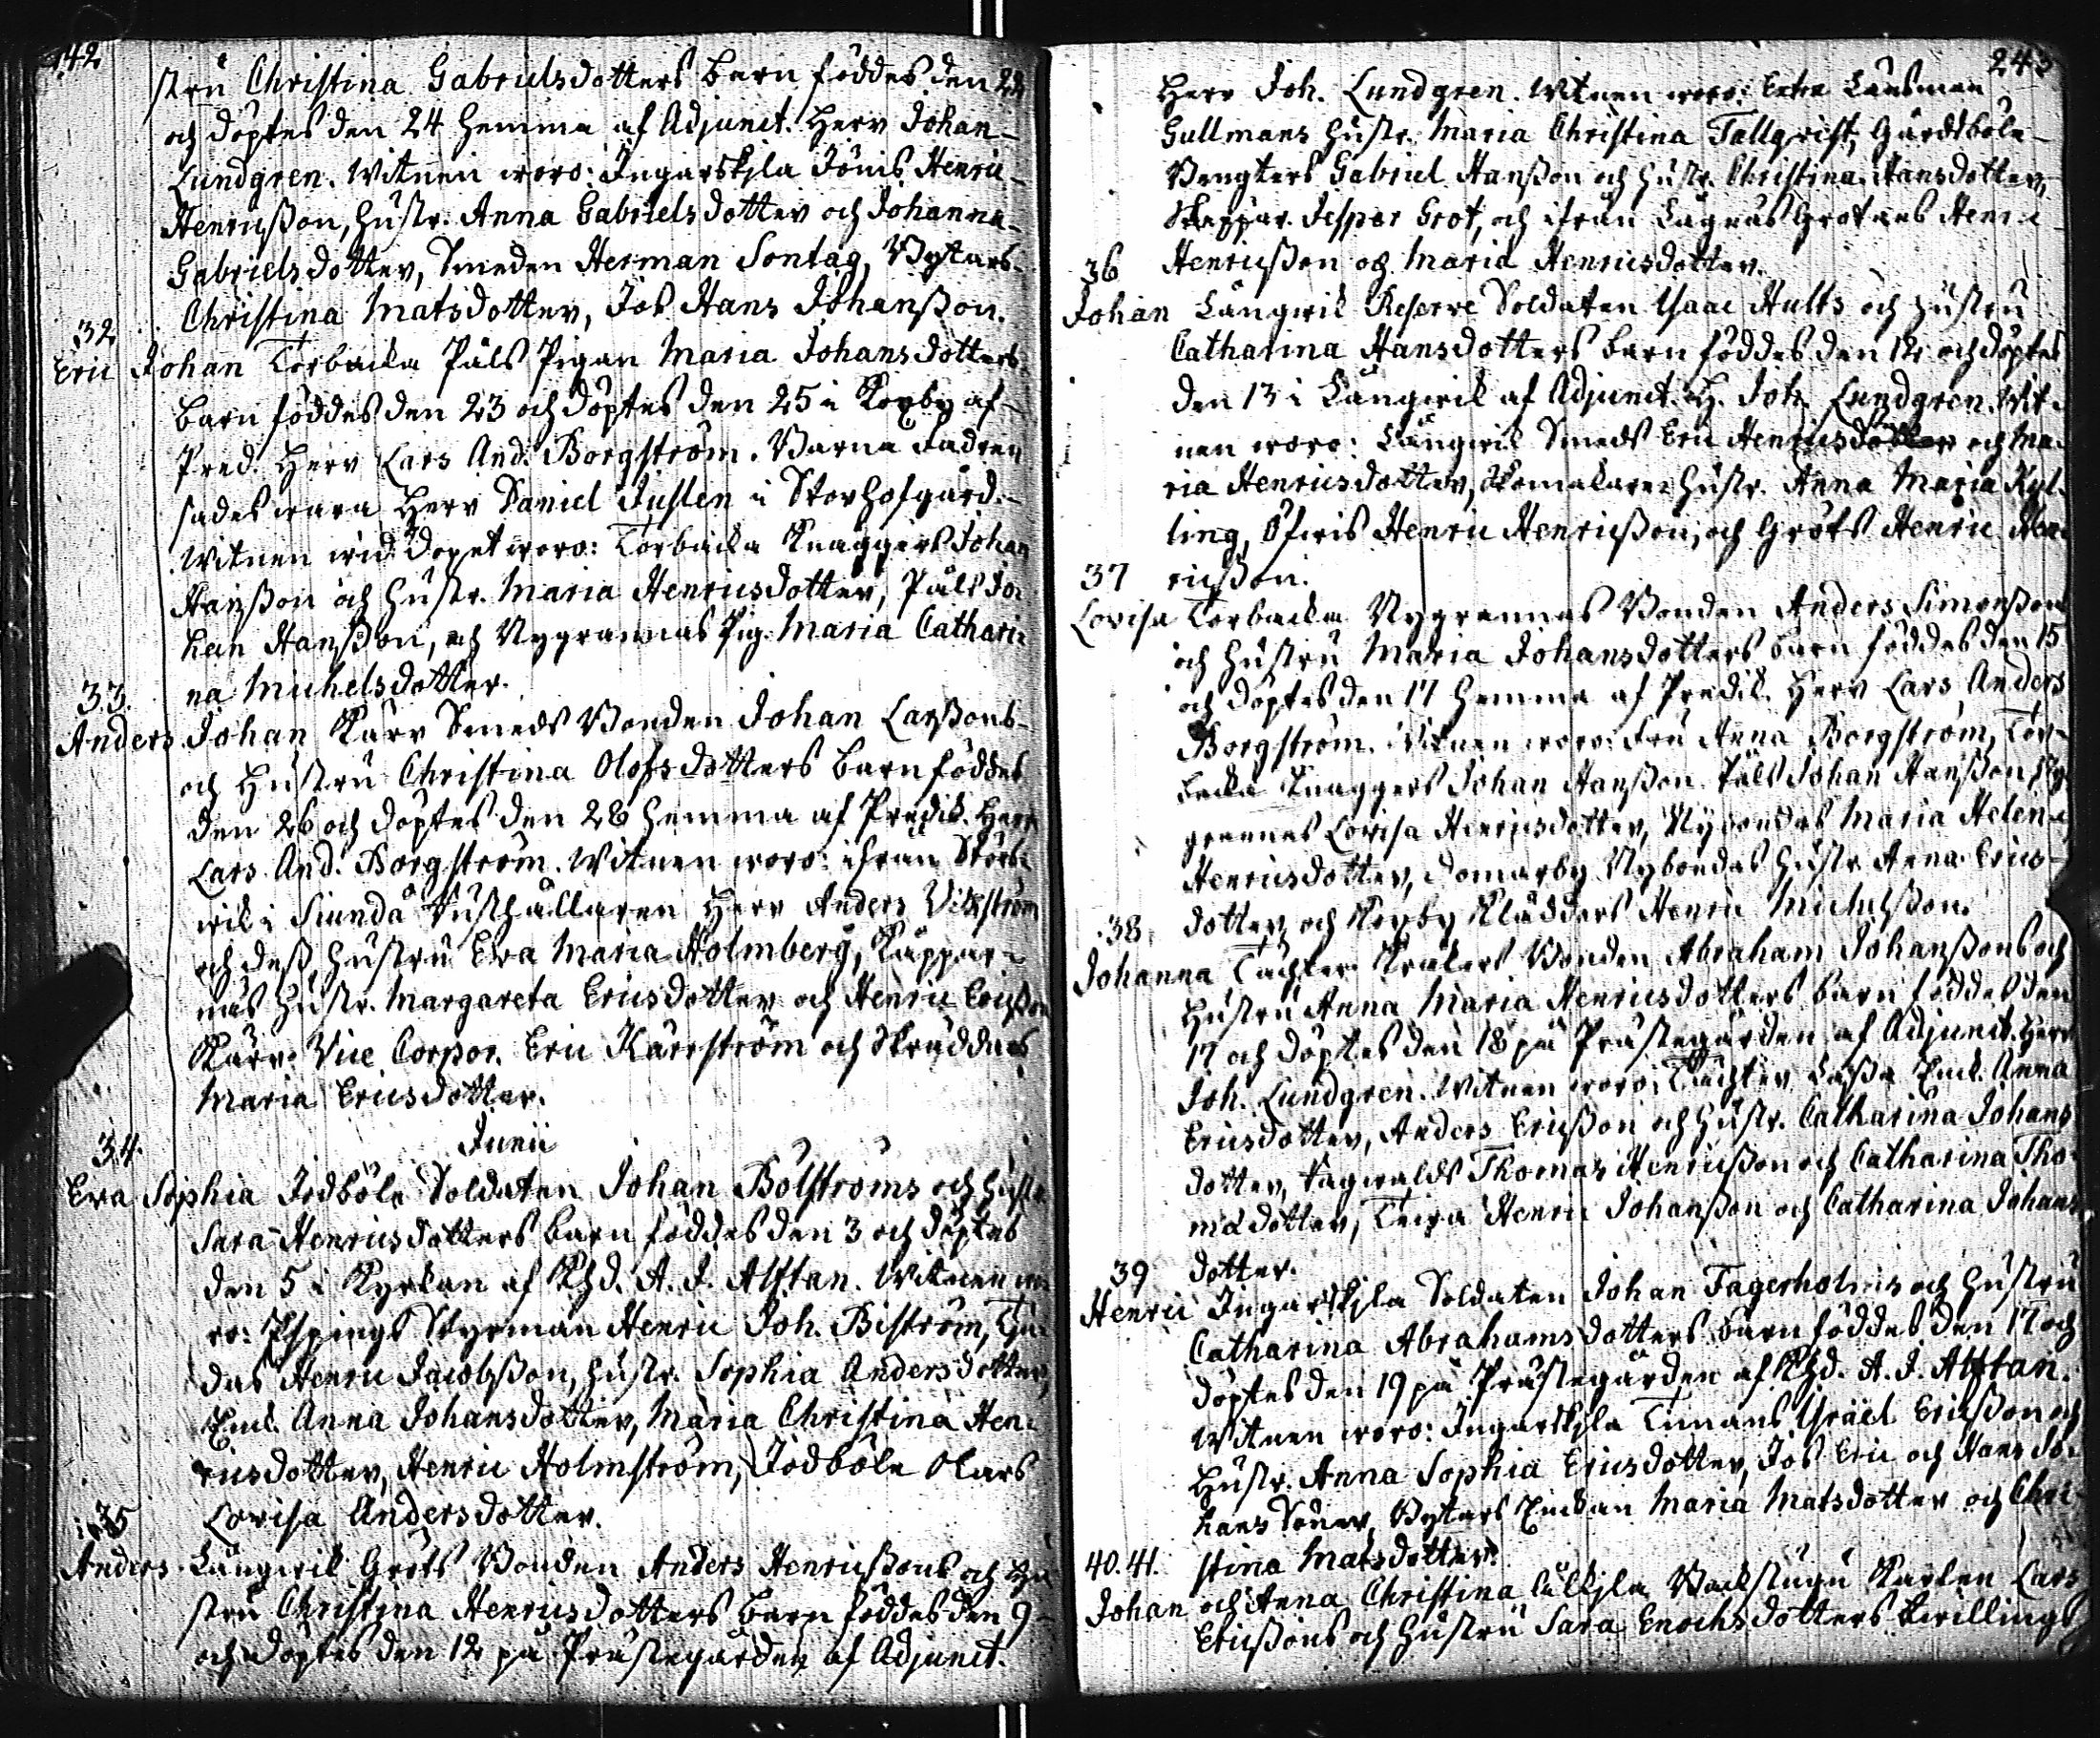 142
stru Christina Gabrielsdotters barn föddes den 22
och döptes den 24 hemma af Adjunct. Herr Johan
Lundgren. Witnen woro: Ingarskjla Jönis Henric
Henricßon, hustr. Anna Gabrielsdotter och Johanna
Gabrielsdotter, Smeden Herman Sontag, Bystars
Christina Matsdotter, Jos Hans Johanßon.
32
Eric Johan Torbacka Påls Pigan Maria Johansdotters
barn föddes den 23 och döptes den 25 i Koxby af
Pred. Herr Lars And. Borgström. Barna Fadren
sades wara Herr Daniel Juslen i Storhofgård.
Witnen wid dopet woro: Torbacka Knaggers Johan
Hanßon och hustr. Maria Henricsdotter, Påls Jo-
han Hanßon, och Nygrannas Pig. Maria Cathari-
na Michelsdotter.
33.
Anders Johan Kärr Smeds Bonden Johan Larßons
och Hustru Christina Olofsdotters barn föddes
den 26 och döptes den 28 hemma af Predik. Herr
Lars And. Borgström. Witnen woro: ifrån Störs-
wik i Siundå Rusthållaren Herr Anders Wikström
och deß hustru Eva Maria Holmberg, Kappar-
nas hustr. Margareta Ericsdotter och Henric Ericßon
Kärr. Vice Corpor. Eric Kärrström och Skräddars
Maria Ericsdotter.
Junii
34.
Eva Sophia Jodböle Soldaten Johan Bölströms och hustr.
Sara Henricsdotters barn föddes den 3 och döptes
den 5 i Kyrkan af Khd. A. J. Alftan. Witnen wo-
ro: Ispings Styrman Henric Joh. Biström,
das Henric Jacobßon, hustr. Sophia Andersdotter,
Enk. Anna Johansdotter, Maria Christina Hen-
ricsdotter, Henric Holmström, Jodböle Olars
Lovisa Andersdotter.
35
Anders Långwik Gröts Bonden Anders Henricßons och Hu-
stru Christina Henricsdotters barn föddes den 9
och döptes den 12 på Prästegården af Adjunct.
243
Herr Joh. Lundgren. Witnen woro: Extra Länsman
Gullmans hustr. Maria Christina Tallqvist, Gårdsböle
Bengters Gabriel Hanßon och hustr. Christina Hansdotter,
Skeppar. Jesper Grot, och ifrån Lågnäs Grotnes Henric
Henricßon och Maria Henricsdotter.
36
Johan Långwik Reserve Soldaten Isaac Hults och hustru
Catharina Hansdotters barn föddes den 12 och döptes
den 13 i Långwik af Adjunct. H. Joh. Lundgren. Wit-
nen woro: Långwik Smeds Eric Henricsdotter och Ma-
ria Henricsdotter, Skomakare hustr. Anna Maria Kyl-
ling, Öfwis Henric Henricßon, och Gröts Henric Hen-
37 ricßon.
Lovisa Torbacka Nygrannas Bonden Anders Simonßons
och hustru Maria Johansdotters barn föddes den 15
och döptes den 17 hemma af Predik. Herr Lars Anders
Borgström. Witnen woro: Fru Anna Borgström, Tor-
backa Knaggers Johan Hanßon. Påls Johan Hanßon Ny-
grannas Lovisa Henricsdotter, Nybondas Maria Helena
Henricsdotter, Domarby Nybondas hustr. Anna Erics-
38. dotter och Koxby Klädders Henric Michelßon.
Johanna Täckter Krökers Bonden Abraham Johanßons och
Hustru Anna Maria Henricsdotters barn föddes den
17 och döptes den 18 på Prästegården af Adjunct. Herr
Joh. Lundgren. Witnen woro: Täckter Laßa Enk. Anna
Ericsdotter, Anders Ericßon och hustr. Catharina Johans
dotter, Sagwalds Thomas Henricßon och Catharina Tho-
mædotter, Henric Johanßon och Catharina Johans
39 dotter.
Henric Ingarskjla Soldaten Johan Fagerholms och hustru
Catharina Abrahamsdotters barn föddes den 17 och
döptes den 19 på Prästegården af Khd. A. J. Alftan.
Witnen woro: Ingarskjla Timans Israel Ericßon och
hustr. Anna Sophia Ericsdotter, Jos Eric och Hans Jo-
hans Söner, Bystars Enkan Maria Matsdotter och Chri-
40.41. stina Matsdotter.
Johan och Anna Christina Backstugu Karlen Lars
Ericßons och hustru Sara Enochsdotters twillings